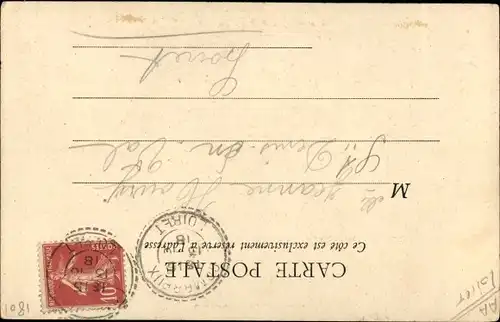 CARTE POSTALE
Ce côté est exclusivement réservé à l'adresse
Mlle Jeanne
St Denis en Val
Loiret
LOIRET
10
1801
AA
Loiret